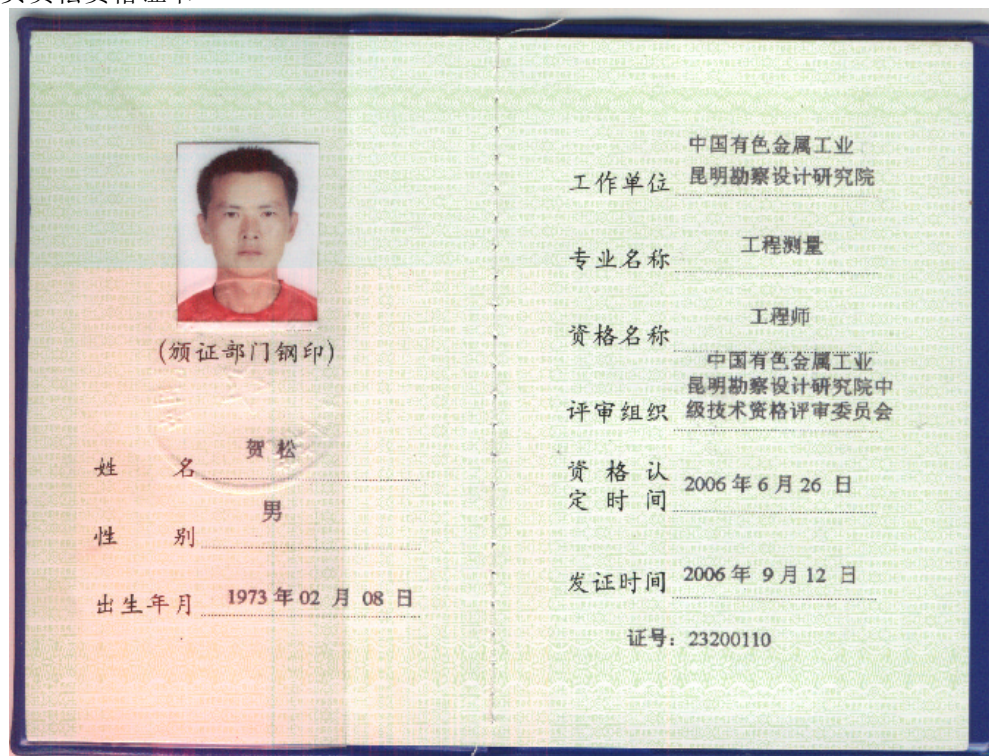 (颁证部门钢印)
姓 名 贺 松
性 别 男
出生年月 1973 年 02 月 08 日
中国有色金属工业
工作单位 昆明勘察设计研究院
专业名称 工程测量
资格名称 工程师
中国有色金属工业
昆明勘察设计研究院中
评审组织 级技术资格评审委员会
资 格 认
定 时 间 2006 年 6 月 26 日
发证时间 2006 年 9 月 12 日
证号: 23200110